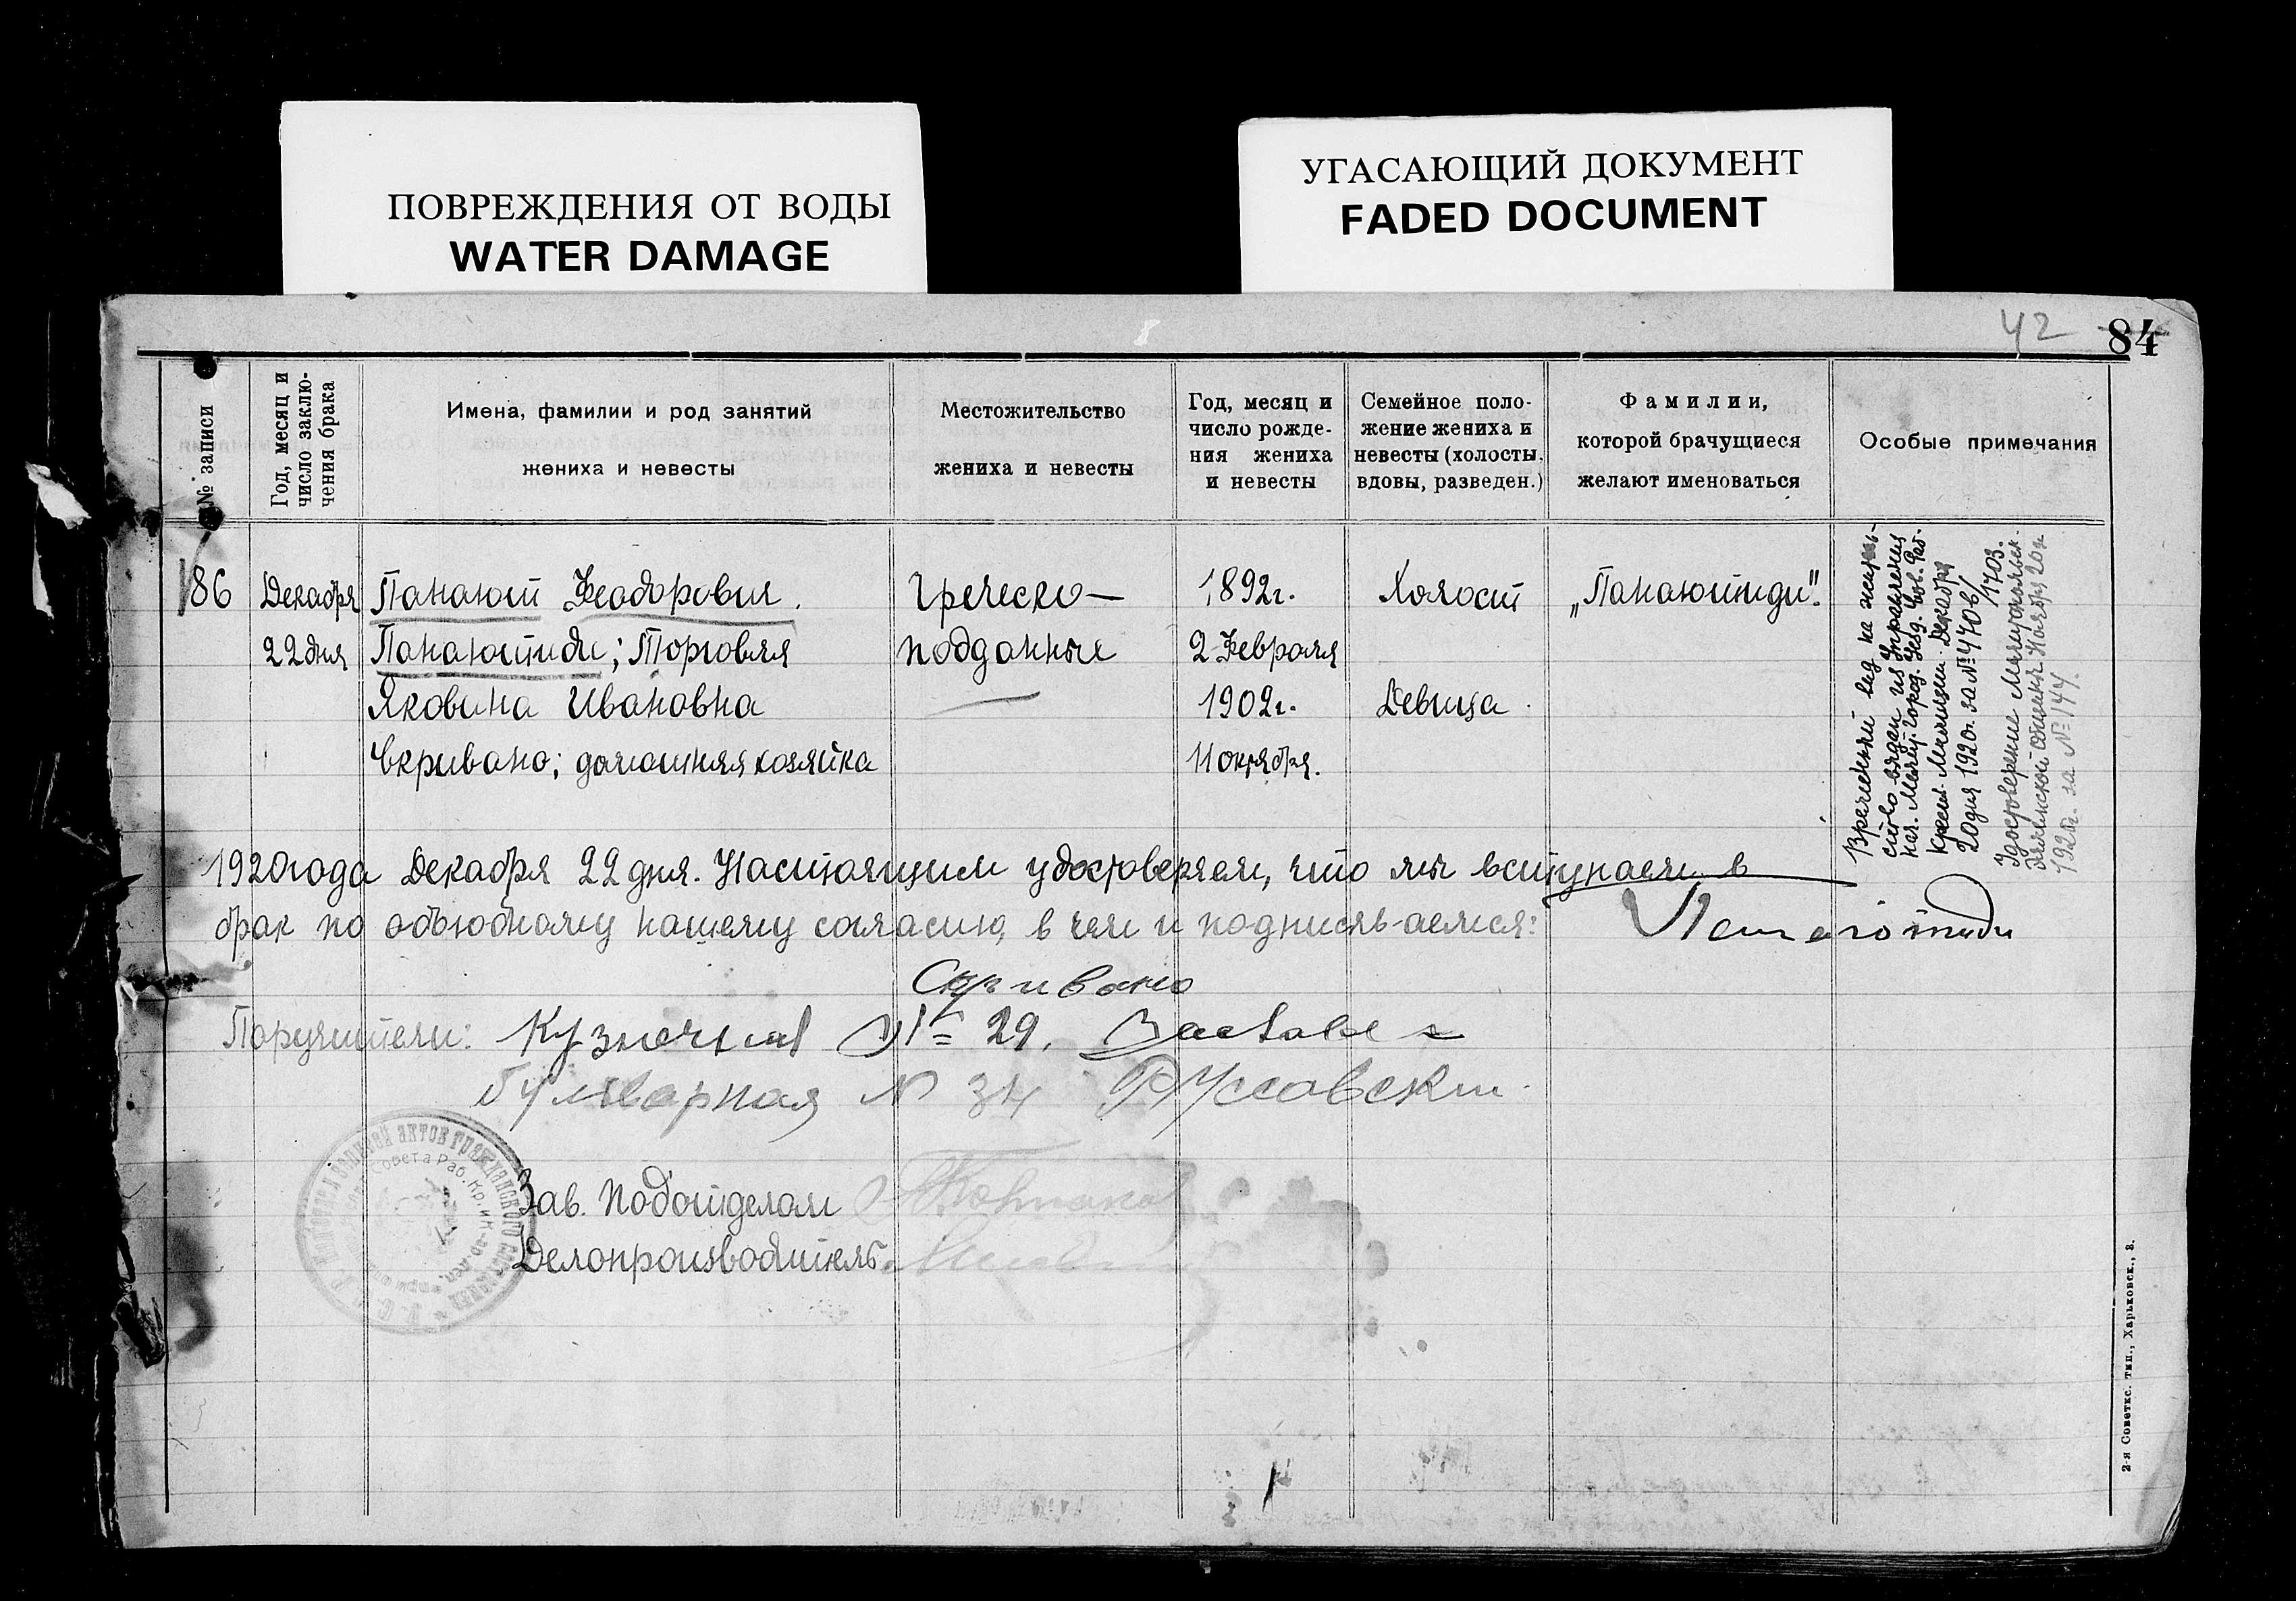 ПОВРЕЖДЕНИЯ ОТ ВОДЫ
WATER DAMAGE
УГАСАЮЩИЙ ДОКУМЕНТ
FADED DOCUMENT
42 84
№ записи
Год, месяц и
число заклю-
чения брака
Имена, фамилии и род занятий
жениха и невесты
Местожительство
жениха и невесты
Год, месяц и
число рожде-
ния жениха
и невесты
Семейное поло-
жение жениха и
невесты (холосты,
вдовы, разведен.)
Фамилии,
которой брачущиеся
желают именоваться
Особые примечания
186
Декабря
22 дня
Панаиот Феодорович
Панаиотиди; Торговля
Яковина Ивановна
Скривано; домашняя хозяйка
Греческо-
подданные
1892г.
2 Февраля
1902г.
11 октября.
Холост
Девица
„Панаиотиди".
Временный вид на житель-
ство выдан из Управления
нач. Мелит. Город. Уезд. Сов. Раб.
Крест. Милиции Декабря
20 дня 1920г. за № 4706/1703.
Удостоверение
Эллинской общины Ноября 20 дн
1920г. за № 144.
1920 года Декабря 22 дня. Настоящим удостоверяем, что мы вступаем в
брак по обоюдному нашему согласию, в чем и подписываемся: Панаиотиди
Скривано
Поручители: № 29.
Бульварная N 34 Руссовский
Зав. Подотделом
Делопроизводитель
2-я Советск. тип., Харьковск., 8.